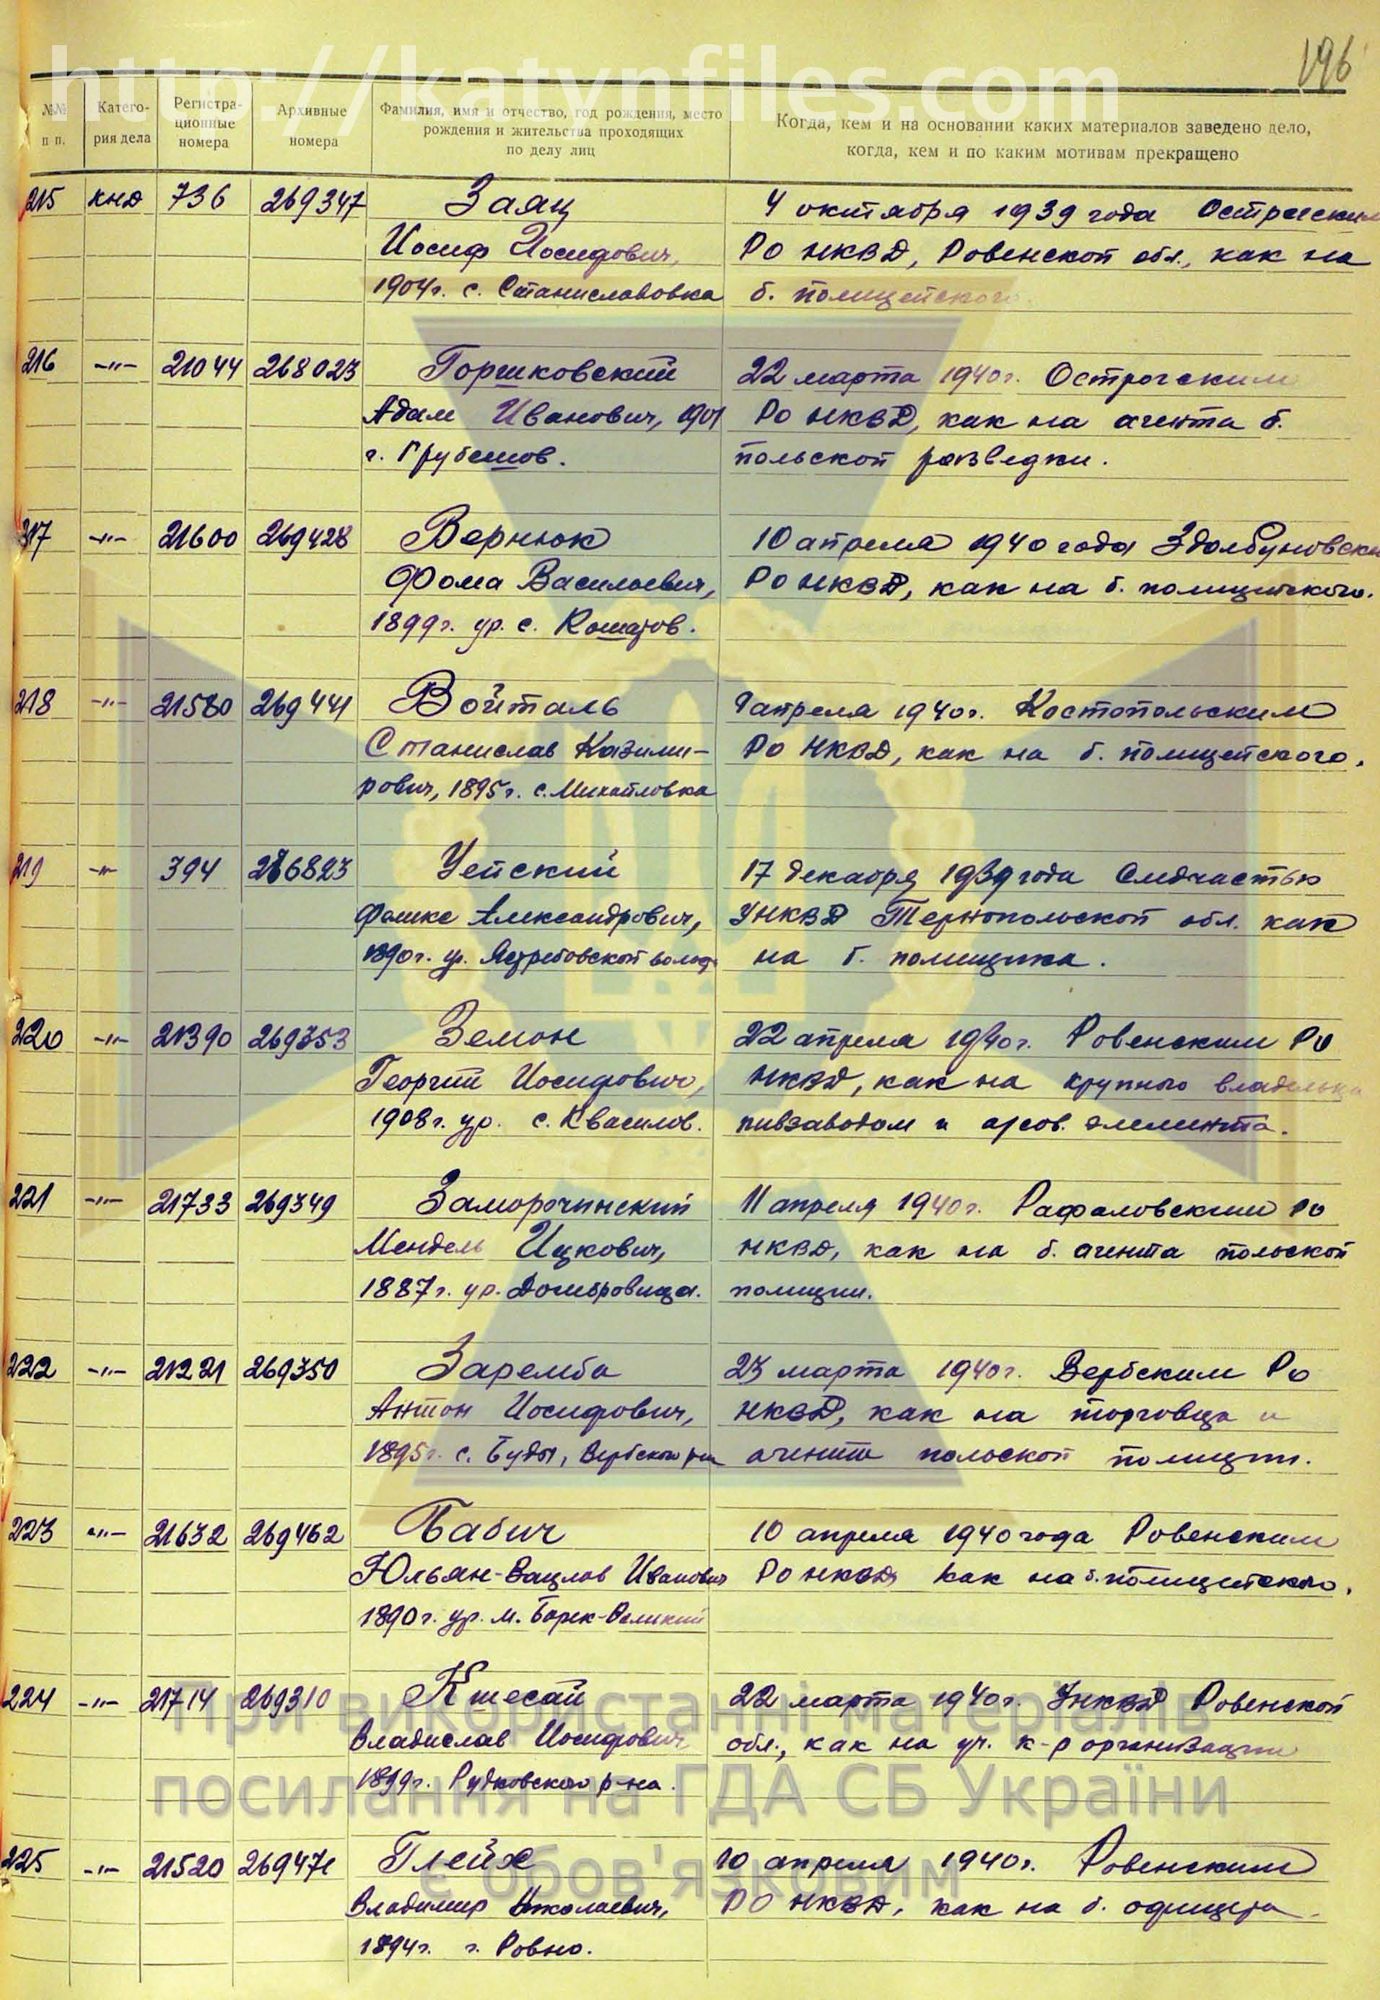 http://katynfiles.com
196
№№ п п.
Катего-рия дела
Регистра-ционные номера
Архивные номера
Фамилия, имя и отчество, год рождения, место
рождения и жительства проходящих
по делу лиц
Когда, кем и на основании каких материалов заведено дело,
когда, кем и по каким мотивам прекращено
215 КНД 736 269347 Заяц 4 октября 1939 года Острогским
Иосиф Иосифович, РО НКВД, Ровенской обл., как на
1904г. с. Станиславовка б. полицейского.
216 -"- 21044 268023 Горшковский 22 марта 1940г. Острогским
Адам Иванович, 1901 РО НКВД, как на агента б.
г. Грубешов. польской разведки.
217 -"- 21600 269428 Вернюк 10 апреля 1940 года Здолбуновски
Фома Васильевич, РО НКВД, как на б. полицейского.
1899г. ур. с. Кошатов.
218 -"- 21580 269441 Войталь 9 апреля 1940г. Костопольским
Станислав Казими- РО НКВД, как на б. полицейского.
рович, 1895г. с. Михайловка
219 -"- 394 286823 Уейский 17 декабря 1939 года Следчастью
Александрович, УНКВД Тернопольской обл. как
1890г. ур. Ястребовской волост. на б. помещика.
220 -"- 21390 269353 Земон 22 апреля 1940г. Ровенским РО
Георгий Иосифович, НКВД, как на крупного владельца
1908г. ур. с. Квасилов. пивзаводом и элемента.
221 -"- 21733 269349 Заморочинский 11 апреля 1940г. Рафаловским РО
Мендель Ицкович, НКВД, как на б. агента польской
1887г. ур. Домбровица. полиции.
222 -"- 21221 269350 Заремба 23 марта 1940г. Вербским РО
Антон Иосифович, НКВД, как на торговца и
1895г. с. Буды, Вербского р-на агента польской полиции.
223 -"- 21632 269462 Бабич 10 апреля 1940 года Ровенским
Юльян-Вацлав Иванович РО НКВД как на б. полицейского.
1890г. ур. м. Борек-Великий
224 -"- 21714 269310 Кшесай 22 марта 1940г. УНКВД Ровенской
Владислав Иосифович обл., как на уч. к-р организации
1899г. Рудковского р-на.
225 -"- 21520 269471 Глейх 10 апреля 1940г. Ровенским
Владимир Николаевич, РО НКВД, как на б. офицера.
1894г. г. Ровно.
При використанні матеріалів
посилання на ГДА СБ України
є обов'язковим